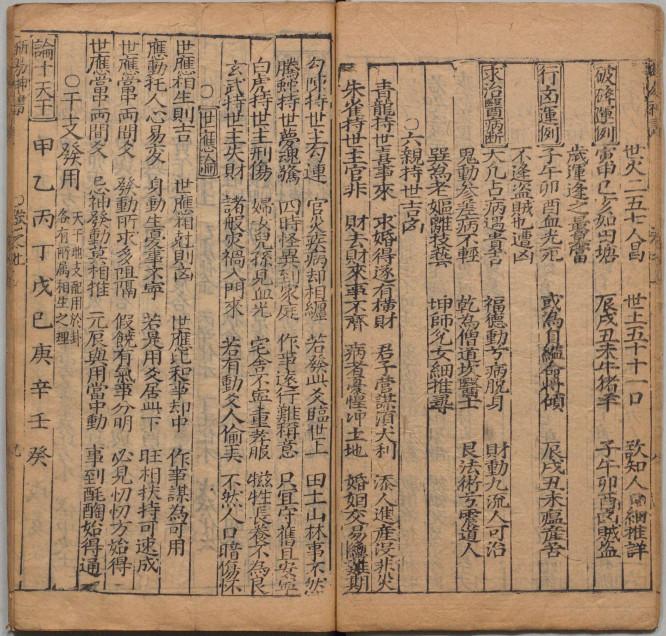 世火二五七人昌 世土五十十一口 致知人口細推詳
破碎運例 寅申巳亥如田塘 辰戌丑未牛猪羊 子午卯酉為賊盜
歲運逢之最當
行凶運例 子午卯酉血光死 或為自縊命將傾 辰戌丑未瘟瘟害
不逢盜賊也遭凶
求治醫病断 大凡占病遇貴吉 福德動兮病脫身 財動九流人可治
鬼動參差病不輕 乾為僧道坎醫士 艮法術兮震道人
巽為老嫗離技藝 坤師兌女細推尋
○六親持世吉凶
青龍持世喜事來 求婚得遂有橫財 君子營謀須大利 添人進產沒非災
朱雀持世主官非 財去財來事不齊 病者憂惶冲土地 婚姻交易亦難期
勾陳持世主勾連 官災疾病却相纏 若發此爻臨世上 田土山林事不然
螣蛇持世夢魂驚 四時怪異到家庭 作事遠行難稱意 只宜守舊且安寧
白虎持世主刑傷 婦女兒孫見血光 宅舍不寧重孝服 犠牲長養不為良
玄武持世主失財 諸般灾禍入門來 若有動爻人偷美 不然人口暗傷怀
○世應論
世應相生則吉 世應相尅則凶 世應比和事却中 作事謀為可用
應動托人心易変 身動生憂事不寧 若是用爻居此下 旺相扶持可速成
世應當中両間爻 發動所求多阻隔 假饒有氣事分明 必見忉忉方始得
世應當中両間爻 忌神發動莫相推 元辰與用當中動 事到酕醄始得通
○干支發用 天干地支配用於卦各有所屬相生之理
論十天干 甲乙丙丁戊己庚辛壬癸